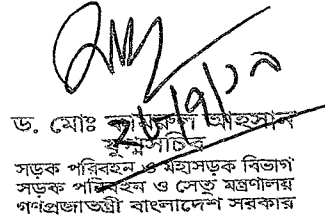 ড. মোঃ কামরুল আহসান
যুগ্মসচিব
সড়ক পরিবহন ও মহাসড়ক বিভাগ
সড়ক পরিবহন ও সেতু মন্ত্রণালয়
গণপ্রজাতন্ত্রী বাংলাদেশ সরকার